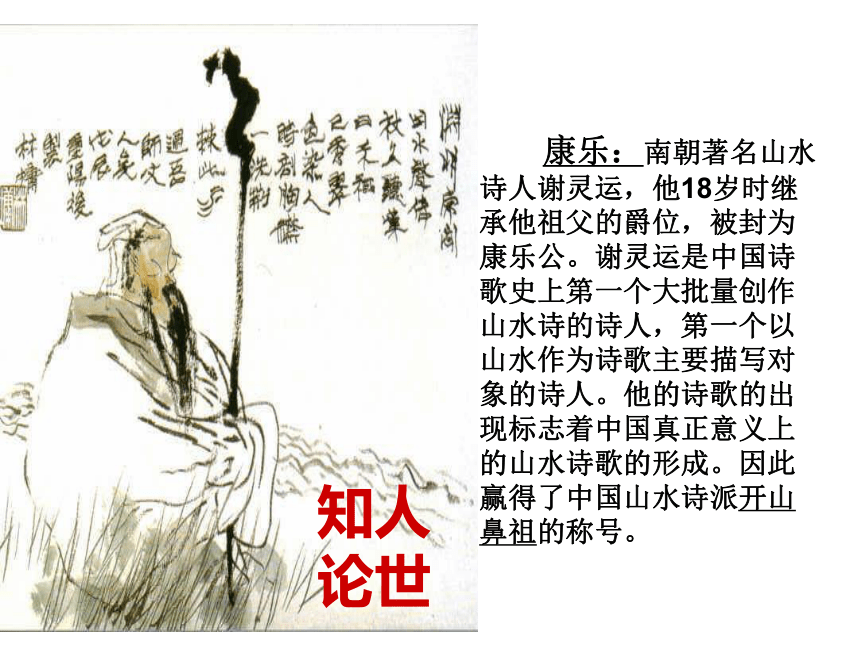 色染人
戊辰
重陽後
製
知人
论世
康乐：南朝著名山水
诗人谢灵运，他18岁时继
承他祖父的爵位，被封为
康乐公。谢灵运是中国诗
歌史上第一个大批量创作
山水诗的诗人，第一个以
山水作为诗歌主要描写对
象的诗人。他的诗歌的出
现标志着中国真正意义上
的山水诗歌的形成。因此
赢得了中国山水诗派开山
鼻祖的称号。